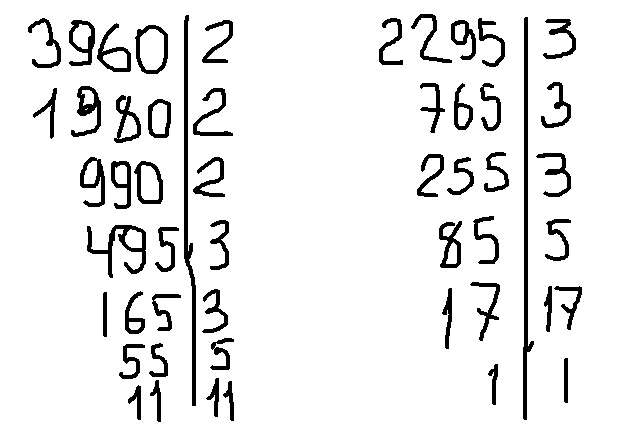 3960 2
1980 2
990 2
495 3
165 3
55 5
11 11
2295 3
765 3
255 3
85 5
17 17
1 1